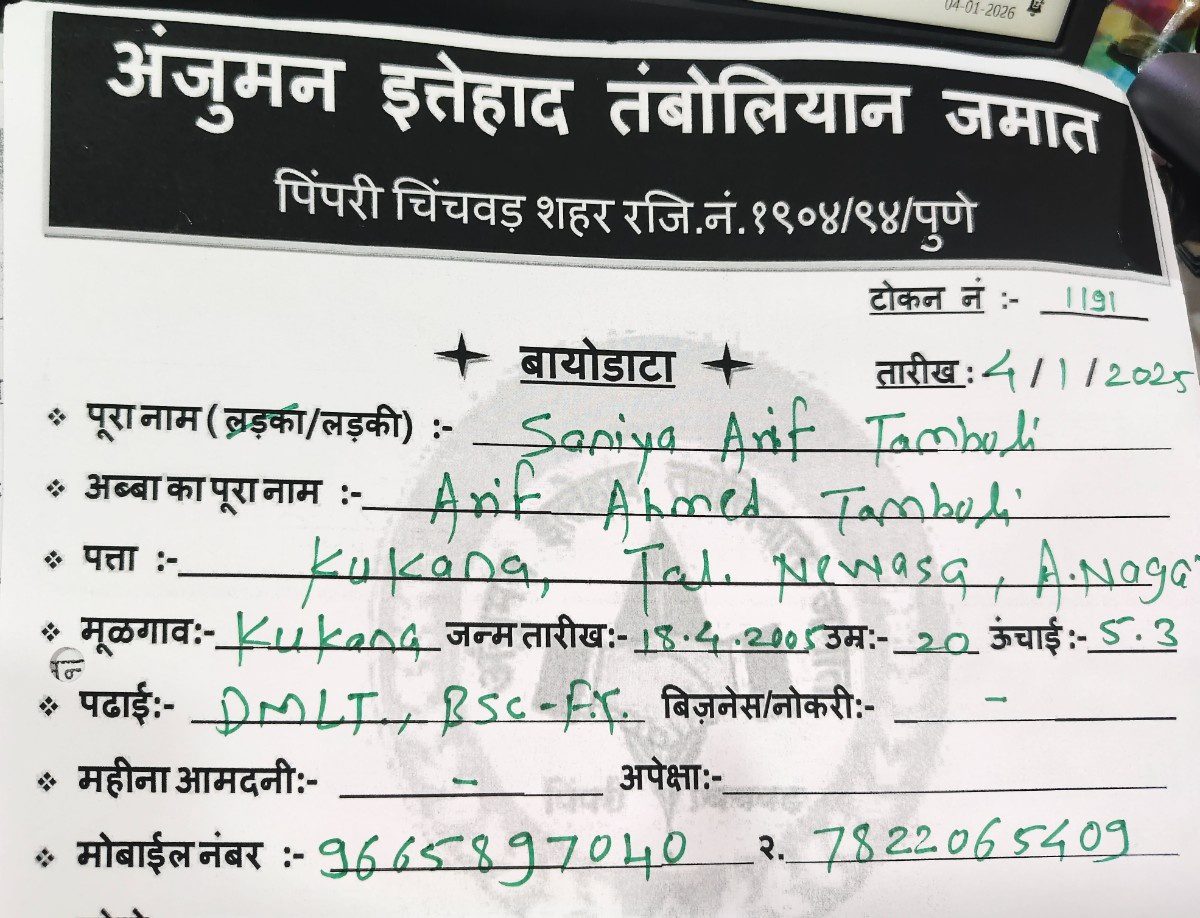 04-01-2026
अंजुमन इत्तेहाद तंबोलियान जमात
पिंपरी चिंचवड़ शहर रजि.नं.१९०४/९४/पुणे
टोकन नं :- 1191
बायोडाटा
तारीख : 4/1/2025
पूरा नाम (लड़का/लड़की) :- Saniya Arif Tamboli
अब्बा का पूरा नाम :- Arif Ahmed Tamboli
पत्ता :- Kukana, Tal. Newasa, A.Naga
मूळगाव:- Kukana जन्म तारीख:- 18.4.2005 उम्र:- 20 ऊंचाई:- 5.3
पढाई:- DMLT., BSc-F.Y. बिज़नेस/नोकरी:- -
महीना आमदनी:- - अपेक्षा:-
मोबाईल नंबर :- 9665897040 २. 7822065409